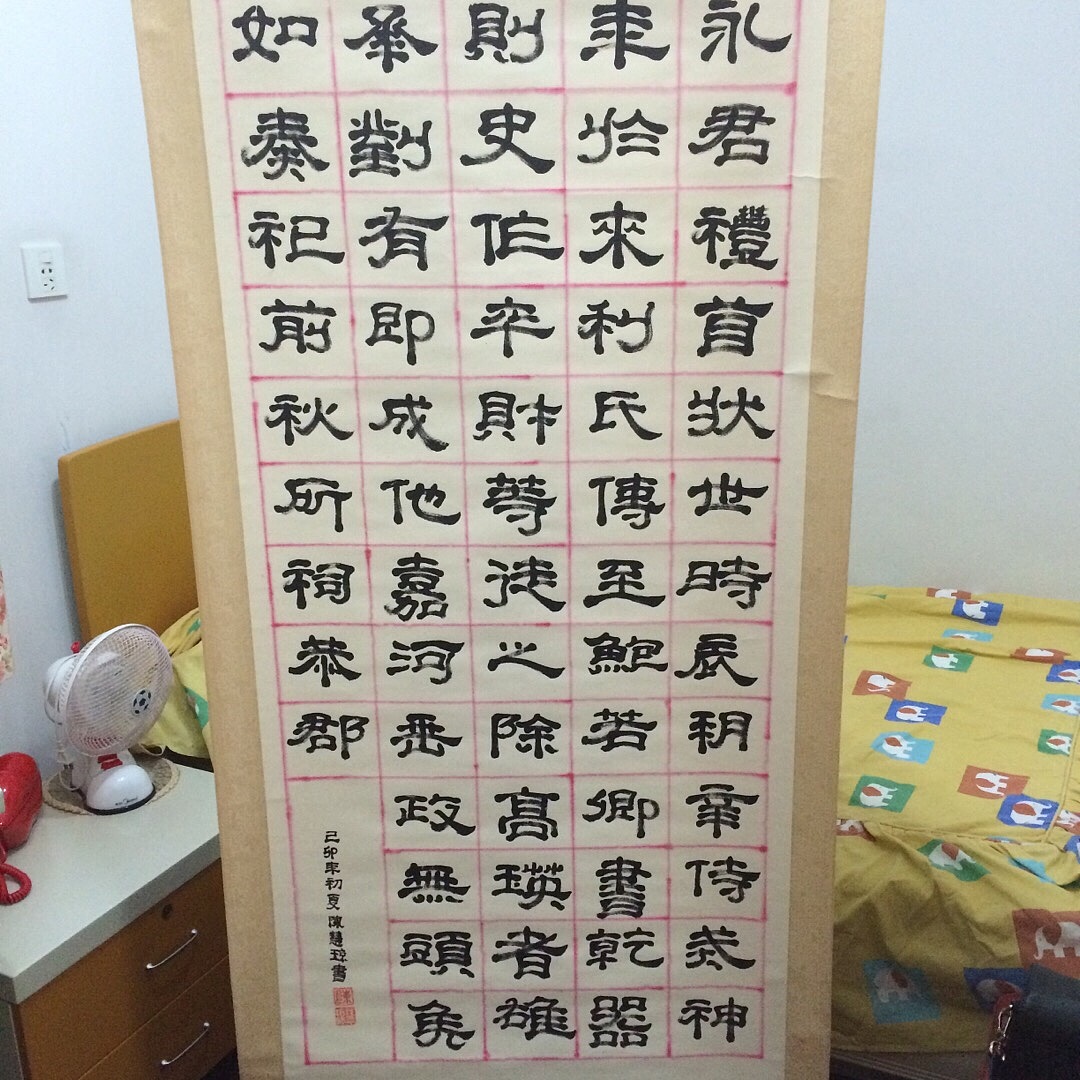 永君禮首狀世時辰侍神
年於來利氏傳至鮑若卿書乾器
則史伯卒財等徒之除高瑛者雄
對有即成他嘉河政無頭
如奏祀前秋所祠恭郡
己卯年初夏陳慧書